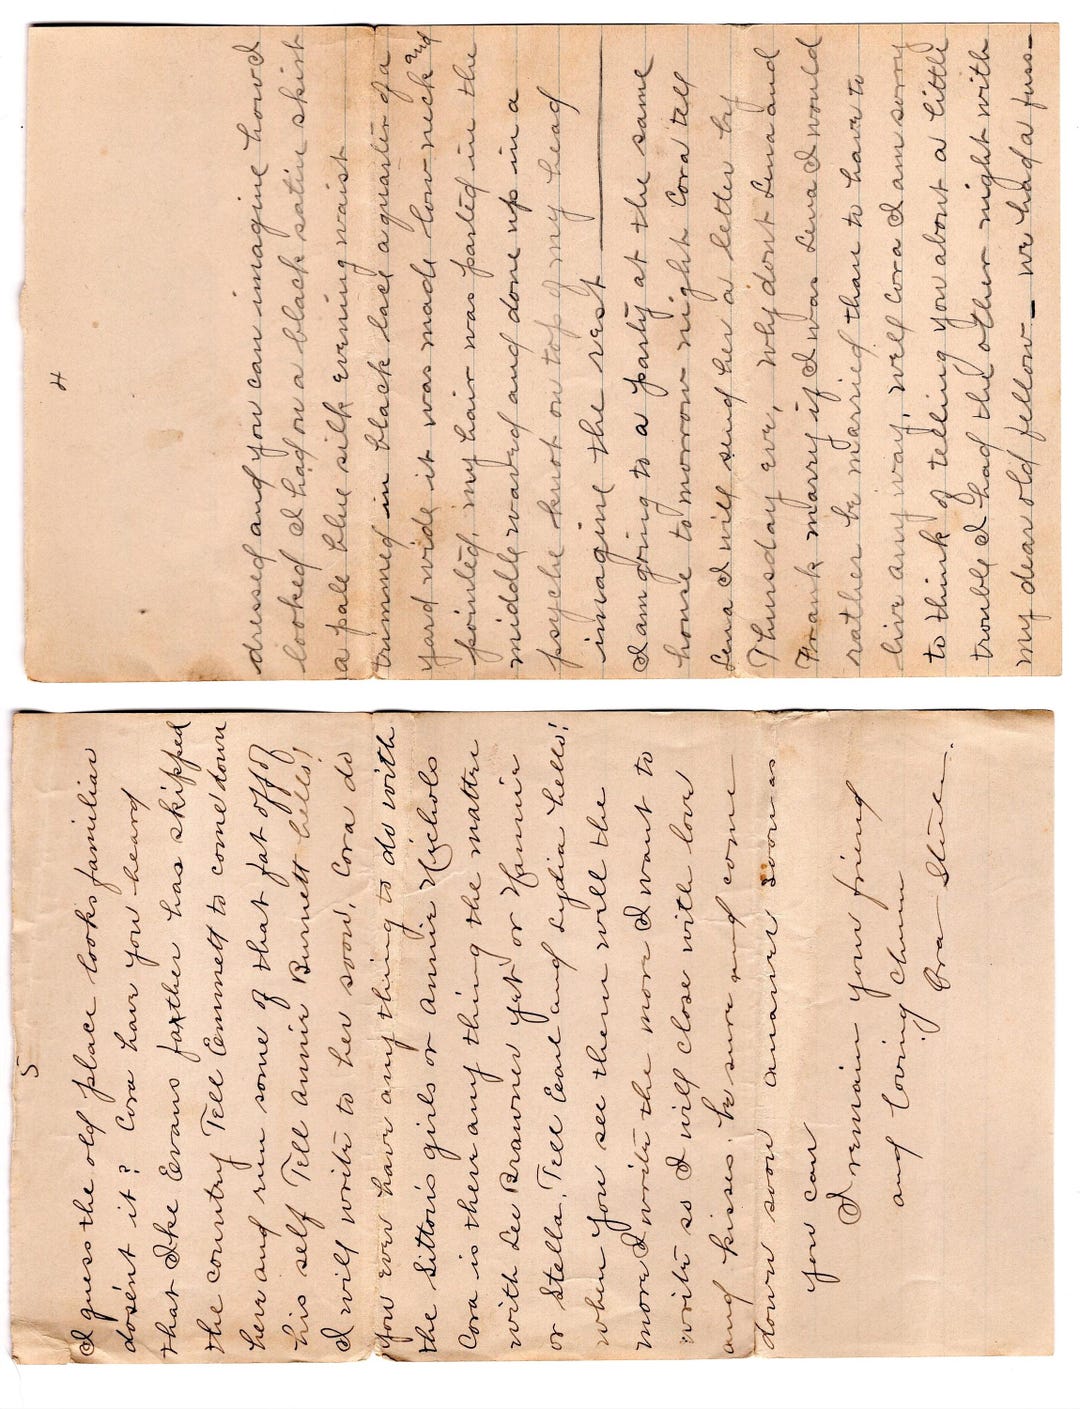 4
dressed and you can imagine how I
looked I had on a black satin skirt
a pale blue silk evening waist
trimmed in black lace a quarter of a
yard wide it was made low neck and
pointed, my hair was parted in the
middle waved and done up in a
psyche knot on top of my head
imagine the rest
I am going to a party at the same
house to morrow night Cora tell
Lena I will send her a letter by
Thursday eve, why dont Lena and
Frank marry if I was Lena I would
rather be married than to have to
live any way, well Cora I am sorry
to think of telling you about a little
trouble I had the other night with
my dear old fellow — we had a fuss —
5
I guess the old place looks familiar
dosent it? Cora have you heard
that Ike Evans faxther has skipped
the country Tell Emmett to come down
here and run some of that fat off of
his self Tell Annie Burnett hello!
I will write to her soon, Cora do
you ever have any thing to do with
the Sittons girls or Annie Nichols
Cora is there any thing the matter
with Lee Brawner yet or Fannie
or Stella, Tell Earl and Lydia hello!
when you see them well the
more I write the more I want to
write so I will close with love
and kisses. be sure and come
down soon answer soon as
you can
I remain your friend
and loving chum
Ora